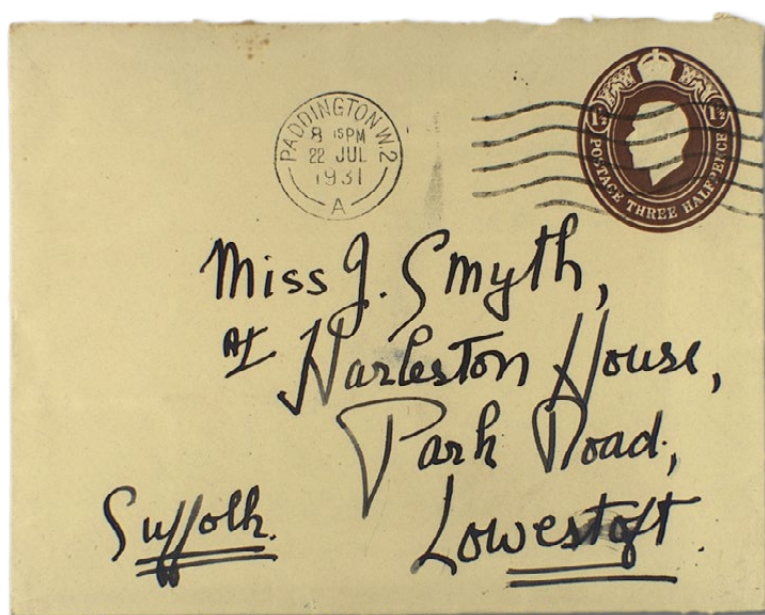 PADDINGTON W.2
8 15 PM
22 JUL
1931
A
1½ 1½
POSTAGE THREE HALFPENCE
Miss J. Smyth,
At Harleston House,
Park Road,
Lowestoft.
Suffolk.